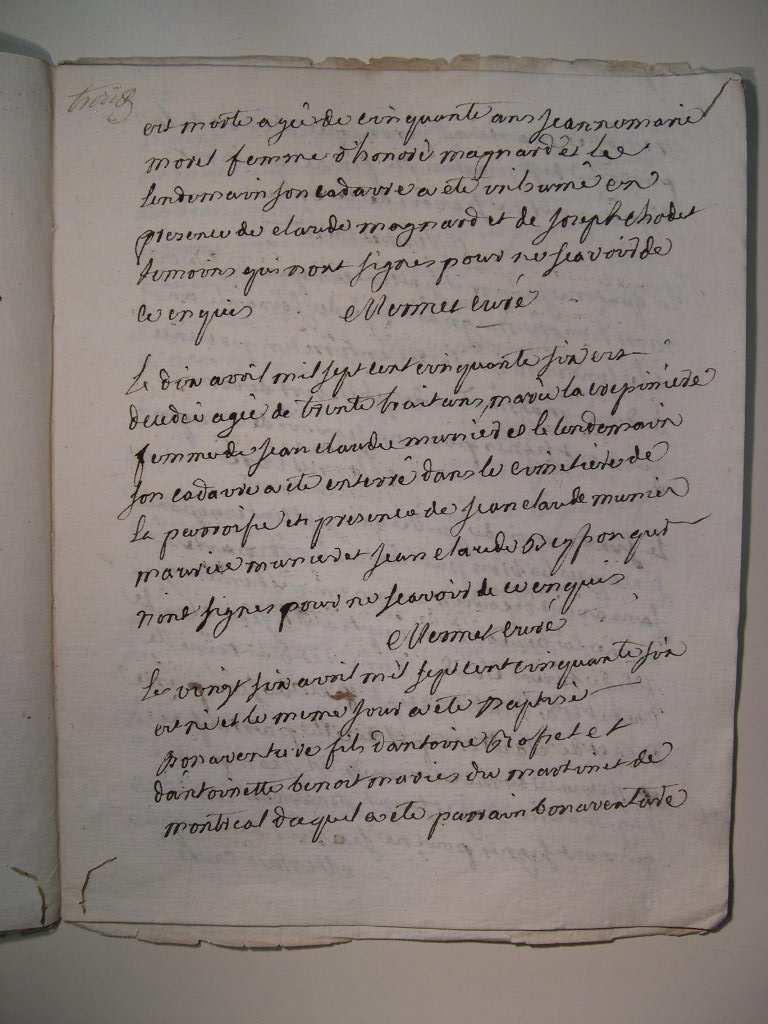 trois
est morte agée de cinquante ans jeanne marie
morel femme d'honoré magnard et le
lendemain son cadavre a été inhumé en
presence de claude magnard et de joseph chodet
temoins qui n'ont signés pour ne scavoir de
ce enquis Mermet curé
Le dix avril mil sept cent cinquante six est
decedée agée de trente huit ans marie la crepiniere
femme de jean claude munier et le lendemain
son cadavre a été enterré dans le cimetiere de
la parroisse en presence de jean claude munier
maurice munier et jean claude qui
n'ont signés pour ne scavoir de ce enquis
Mermet curé
Le vingt six avril mil sept cent cinquante six
est né et le meme jour a été Baptisé
Bonaventure fils d'antoine et
d'antoinette benoit mariés du martinet de
montreal duquel a été parrain bonaventure